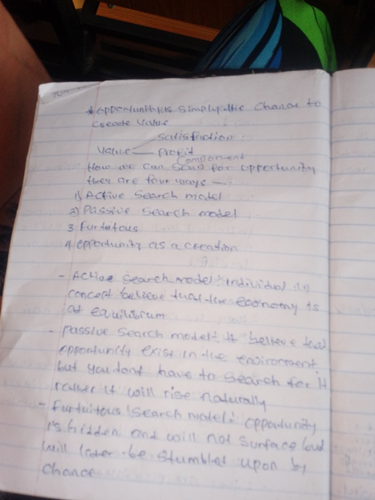 * Opportunity is simply the chance to
create value
satisfaction
Value — Profit
Component
How we can scan for opportunity
they are four ways —
1) Active search model
2) Passive search model
3 Furtutous
4 opportunity as a creation
- Active search model: individual in
concept believe that the economy is
at equilibrium
- Passive search model: it believe that
opportunity exist in the environment
but you dont have to search for it
rather it will rise naturally
- Furtuitous search model: opportunity
is hidden and will not surface but
will later be stumbled upon by
chance